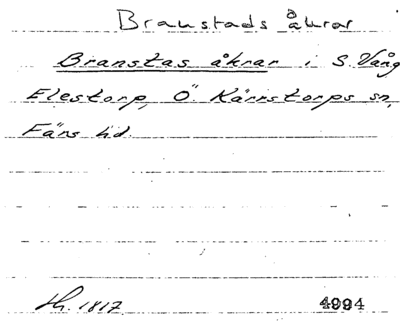 Branstads åkrar
Branstas åkrar i S. Vång
Elestorp, Ö. Kärrstorps sn,
Färs hd.
Lh. 1817 4994